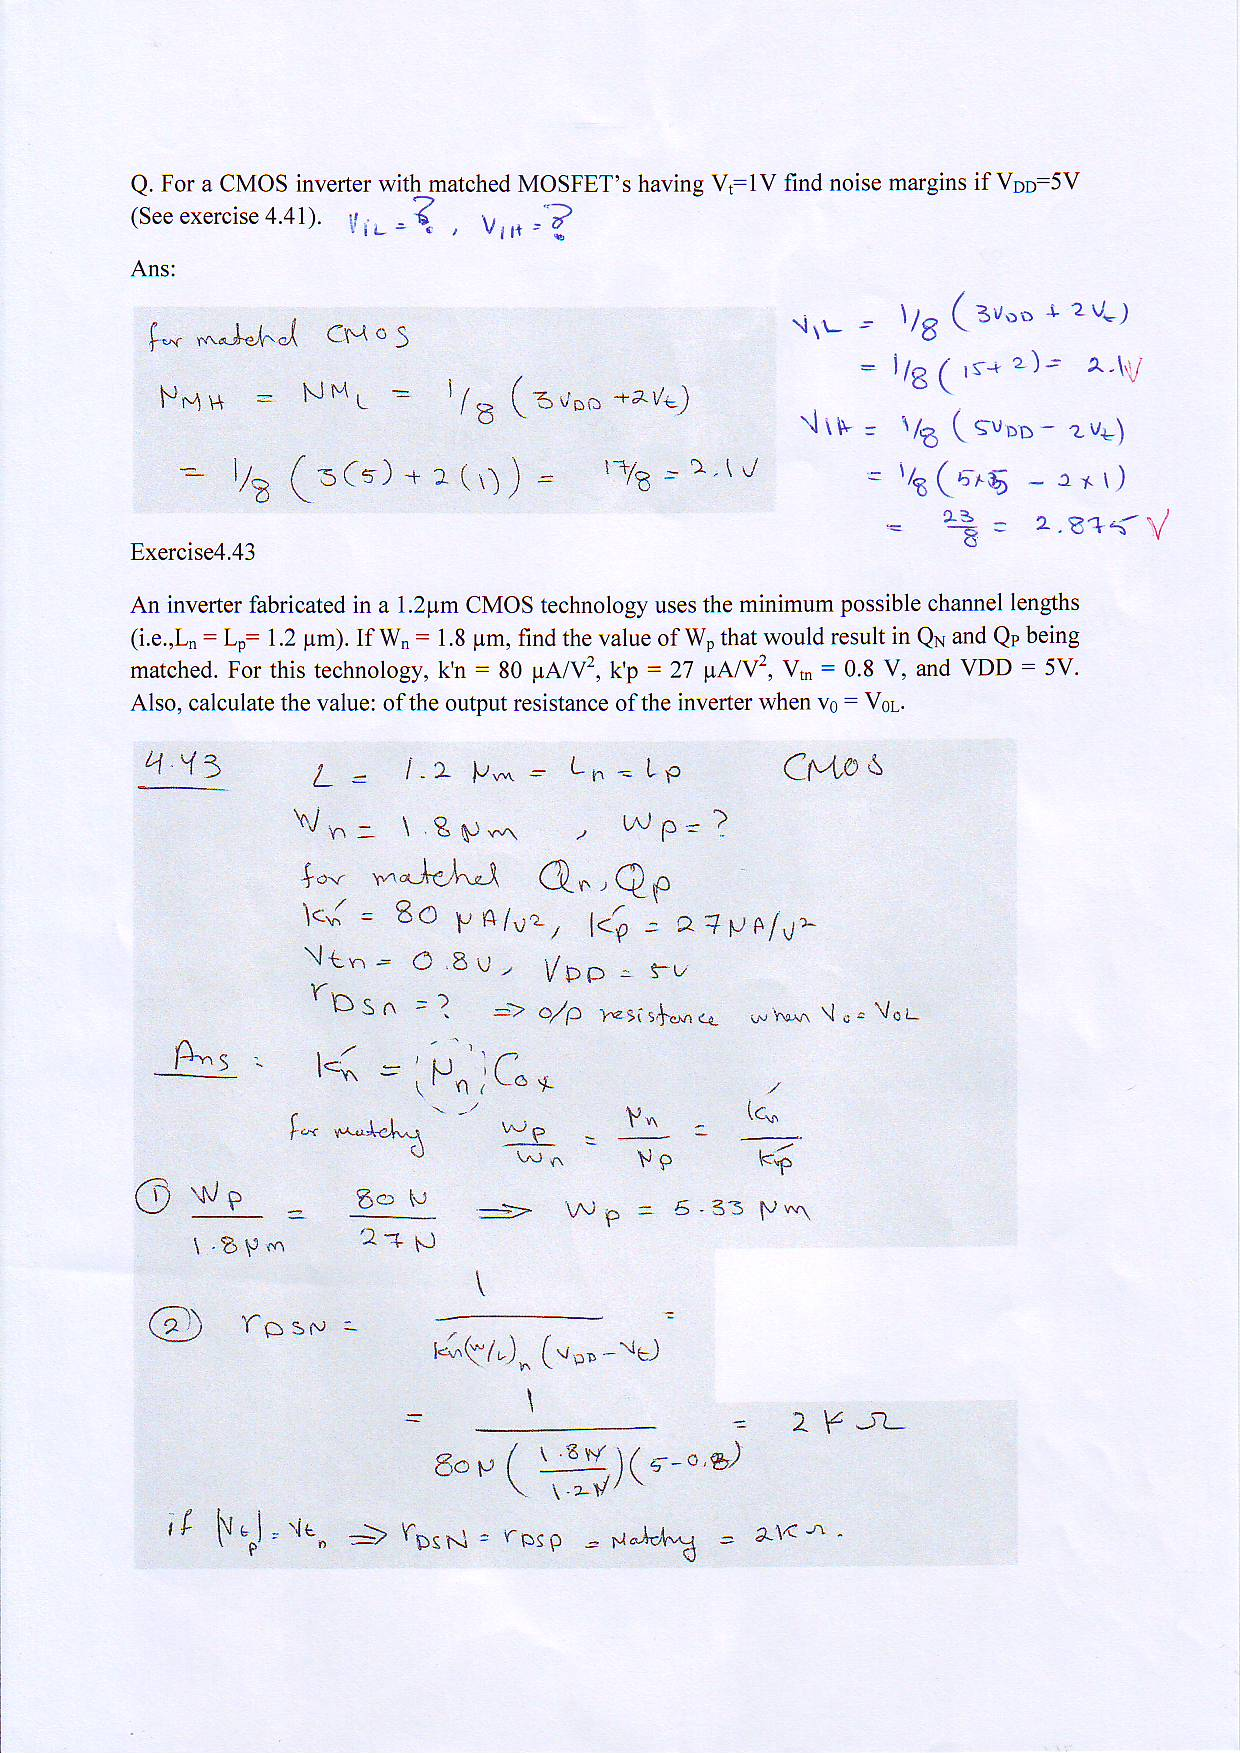 Q. For a CMOS inverter with matched MOSFET's having Vt=1V find noise margins if VDD=5V
(See exercise 4.41). VIL = ?, VIH = ?
Ans:
for matchd CMOS
NMH = NML = 1/8 (3VDD +2Vt)
= 1/8 (3(5) + 2(1)) = 17/8 = 2.1V
VIL = 1/8 (3VDD + 2Vt)
= 1/8 (15+2) = 2.1V
VIH = 1/8 (5VDD - 2Vt)
= 1/8 (5×5 - 2×1)
= 23/8 = 2.875 V
Exercise4.43
An inverter fabricated in a 1.2μm CMOS technology uses the minimum possible channel lengths
(i.e.,Ln = Lp= 1.2 μm). If Wn = 1.8 μm, find the value of Wp that would result in QN and QP being
matched. For this technology, k'n = 80 μA/V², k'p = 27 μA/V², Vtn = 0.8 V, and VDD = 5V.
Also, calculate the value: of the output resistance of the inverter when v0 = VOL.
4.43 L = 1.2 μm = Ln = Lp CMOS
Wn = 1.8 μm , Wp = ?
for matched Qn, Qp
kn' = 80 μA/V², kp' = 27 μA/V²
Vtn = 0.8V, VDD = 5V
rDSn = ? => o/p resistance when Vo = VOL
Ans : kn' = μn Cox
for matchg Wp/Wn = μn/μp = kn'/kp'
① Wp/1.8μm = 80μ/27μ => Wp = 5.33 μm
② rDSN = 1/(kn'(W/L)n (VDD - Vt)) =
= 1/(80μ(1.8μ/1.2μ)(5-0.8)) = 2 KΩ
if |Vtp| = Vtn => rDSN = rDSP = Matchg = 2KΩ.